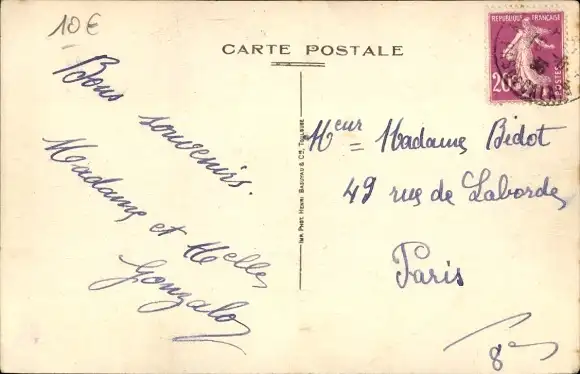 10 €
CARTE POSTALE
REPUBLIQUE FRANÇAISE
20
POSTES
Bons
souvenirs.
Madame et Melles
Gonzalo
IMP. PHOT. HENRI BASUYAU & Cie, TOULOUSE
Meur = Madame Bidot
49 rue de Laborde
Paris
8e